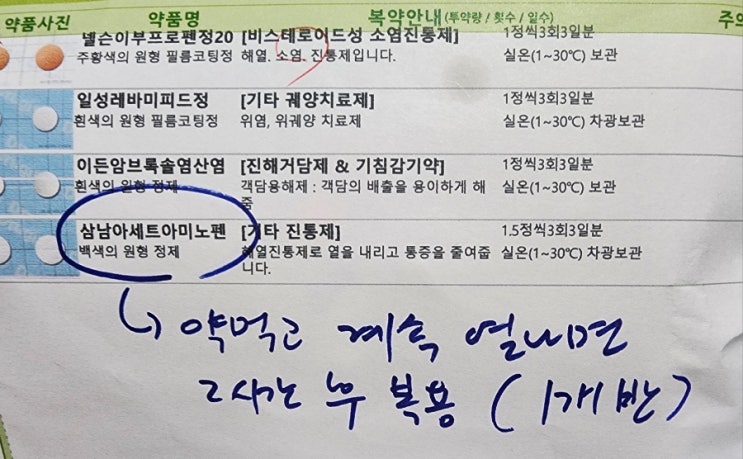 약품사진 약품명 복약안내(투약량 / 횟수 / 일수) 주의
넬슨이부프로펜정20 [비스테로이드성 소염진통제] 1정씩3회3일분
주황색의 원형 필름코팅정 해열. 소염. 진통제입니다. 실온(1~30℃) 보관
일성레바미피드정 [기타 궤양치료제] 1정씩3회3일분
흰색의 원형 필름코팅정 위염, 위궤양 치료제 실온(1~30℃) 차광보관
이든암브록솔염산염 [진해거담제 & 기침감기약] 1정씩3회3일분
흰색의 원형 정제 객담용해제 : 객담의 배출을 용이하게 해 실온(1~30℃) 보관
줌
삼남아세트아미노펜 [기타 진통제] 1.5정씩3회3일분
백색의 원형 정제 해열진통제로 열을 내리고 통증을 줄여줍 실온(1~30℃) 차광보관
니다.
약먹고 계속 열나면
2시간 후 복용 (1개반)